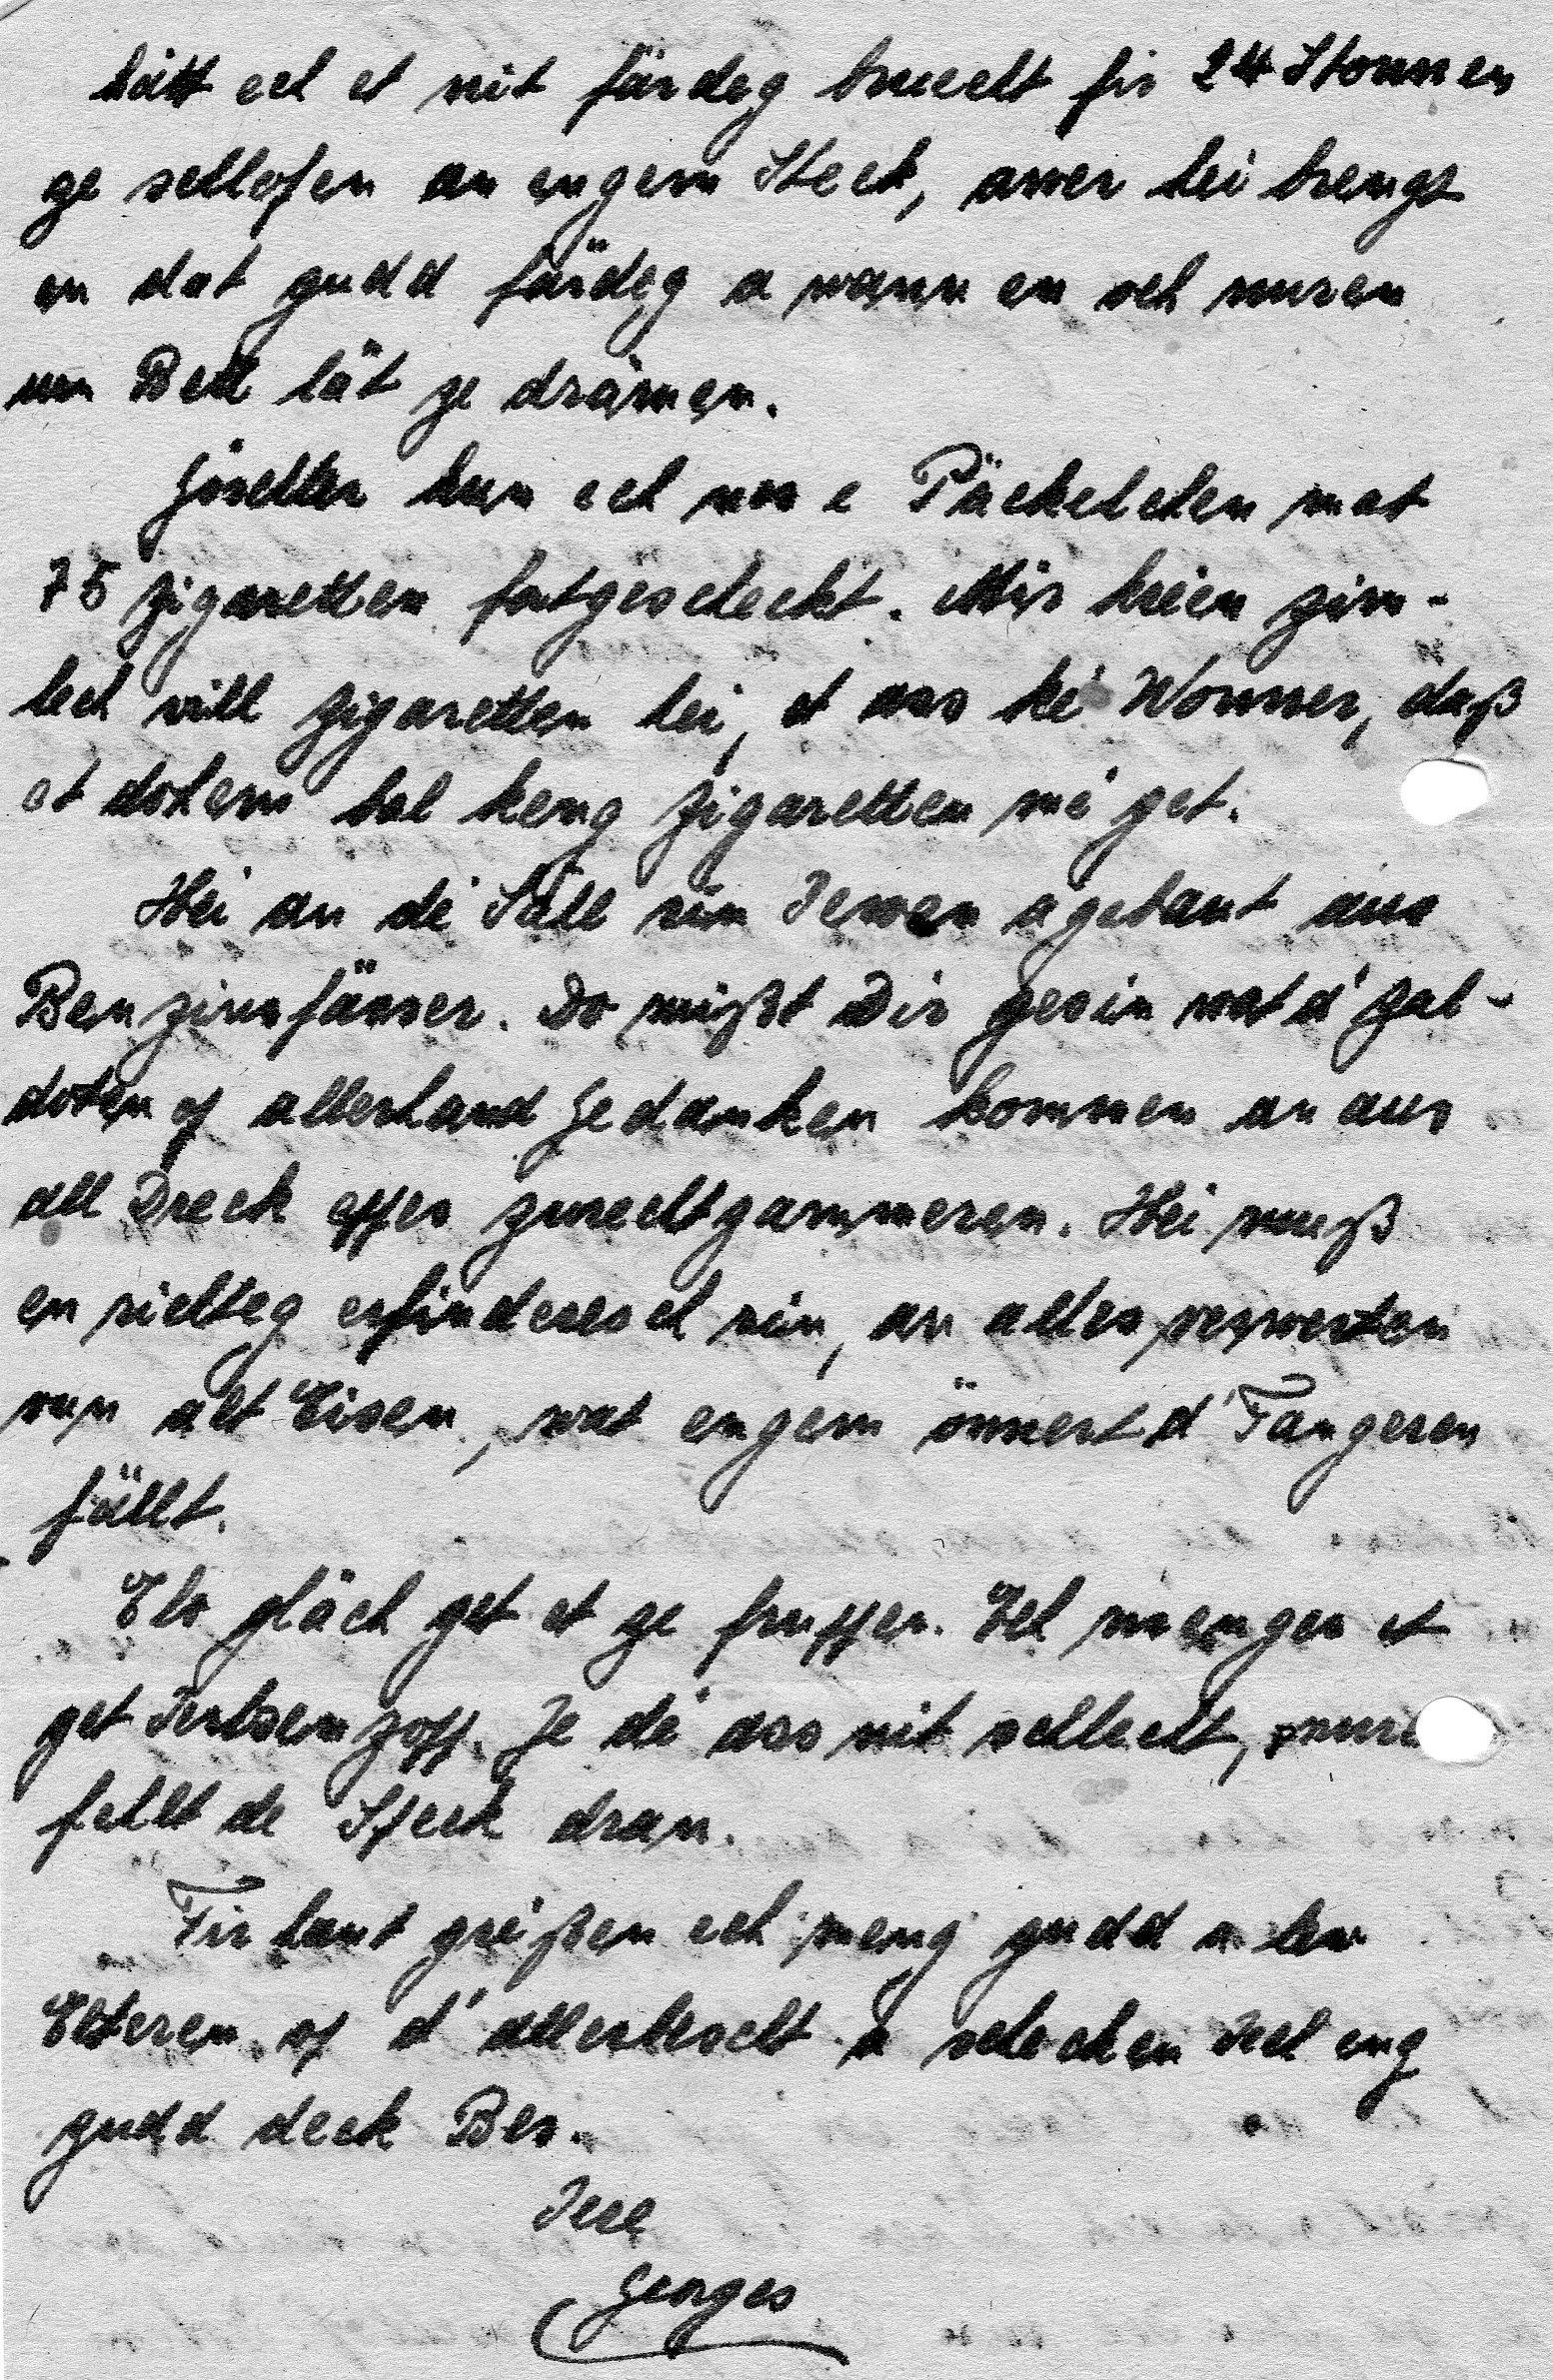 hätt ech et nit färdeg bruecht fir 24 Stonnen
ze schlofen an engem Steck, awer hei brengt
en dat gudd färdeg a wann en och nuren
um Bett lät ze drämen.
Göschter hun ech nos e Päckelchen mat
75 Zigaretten fortgescheckt. Mir kréien zim-
lech vill Zigaretten hei, et ass ké Wonner, daß
et dohem bal keng Zigaretten mé get.
Hei an dé Säll sin Iewen agebaut aus
Benzinsfässer. Do mißt Dir gesin wat d'Zal-
doten of allerhand Gedanken kommen an aus
all Dreck eppes zurechtzammeren. Hei muß
en richteg erfinderesch sin, an alles verwerten
vun alt Eisen, wat engem önnert d'Fangeren
fällt.
Elo gläch get et ze fruppen. Ech mengen et
get Ierbsenzopp. Je dé ass nit schlecht, nure
fehlt de Speck dran.
Fir haut gréißen ech meng gudd a léw
Elteren of d'allerbescht a schecken Iech eng
gudd deck Bes.
Iere
Georges